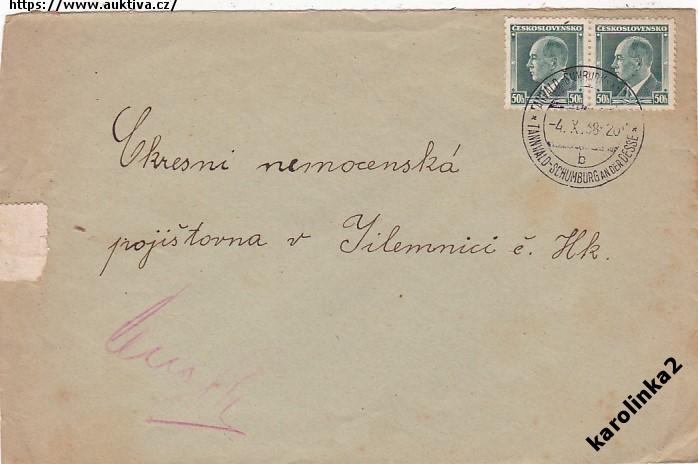 https://www.auktiva.cz/
ČESKOSLOVENSKO ČESKOSLOVENSKO
50h 50h 50h 50h
-4. X. 38-20
b
* TANNWALD-SCHUMBURG AN DER DESSE *
Okresní nemocenská
pojišťovna v Jilemnici č. Hk.
karolinka2